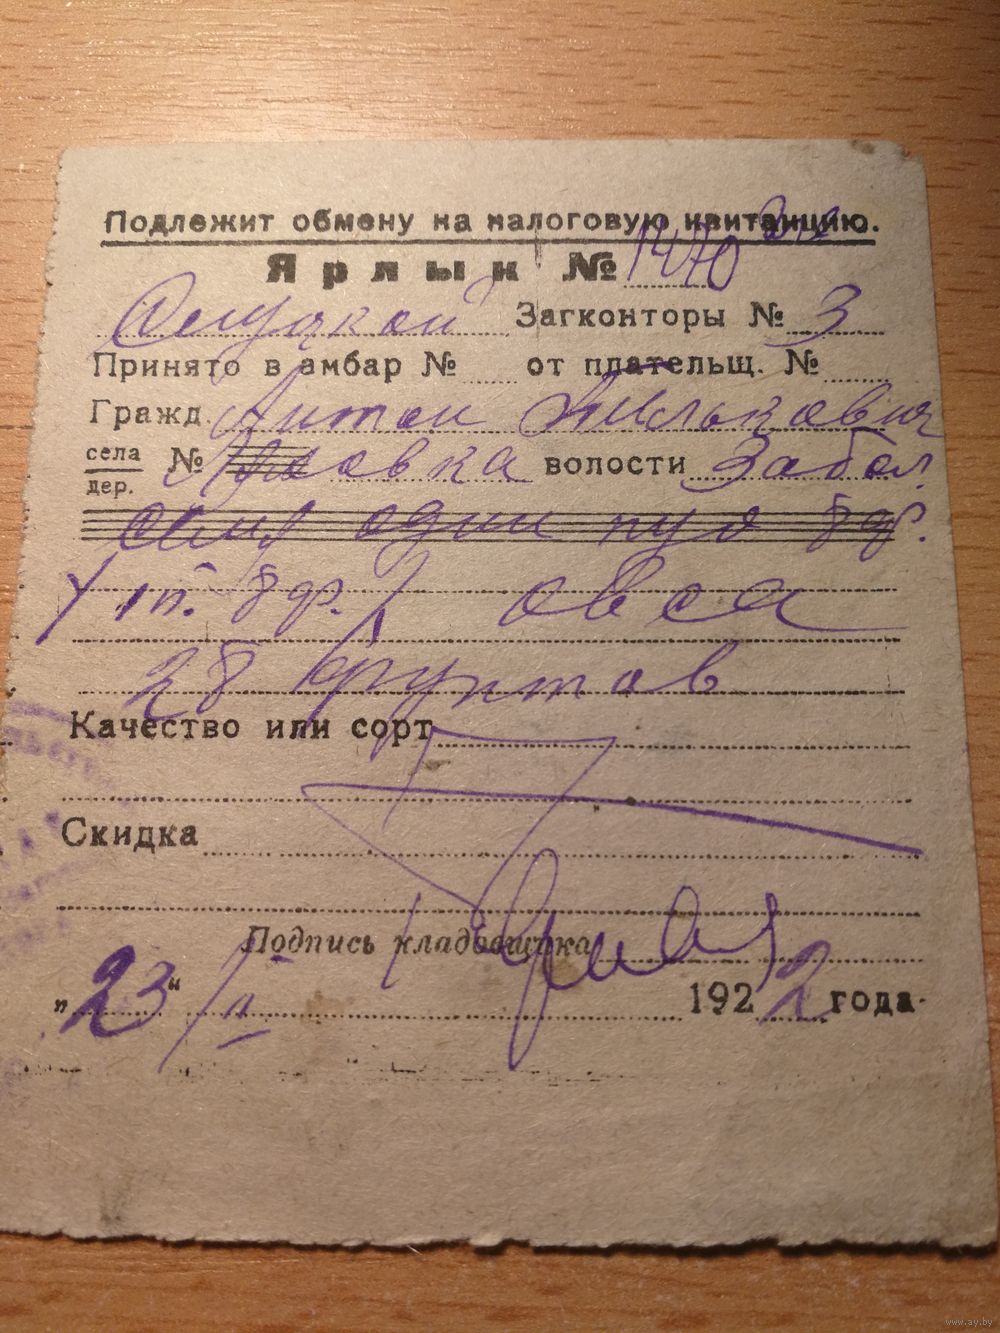 Подлежит обмену на налоговую квитанцию.
Ярлык № 1470
Слуцкой Загконторы № 3
Принято в амбар № от плательщ. №
Гражд. Антон
села дер. № волости Забол.
один пуд 8 ф.
1 п. 8 ф. овса
28 фунтов
Качество или сорт
Скидка
Подпись кладовщика
„23“ 1922 года
www.ay.by